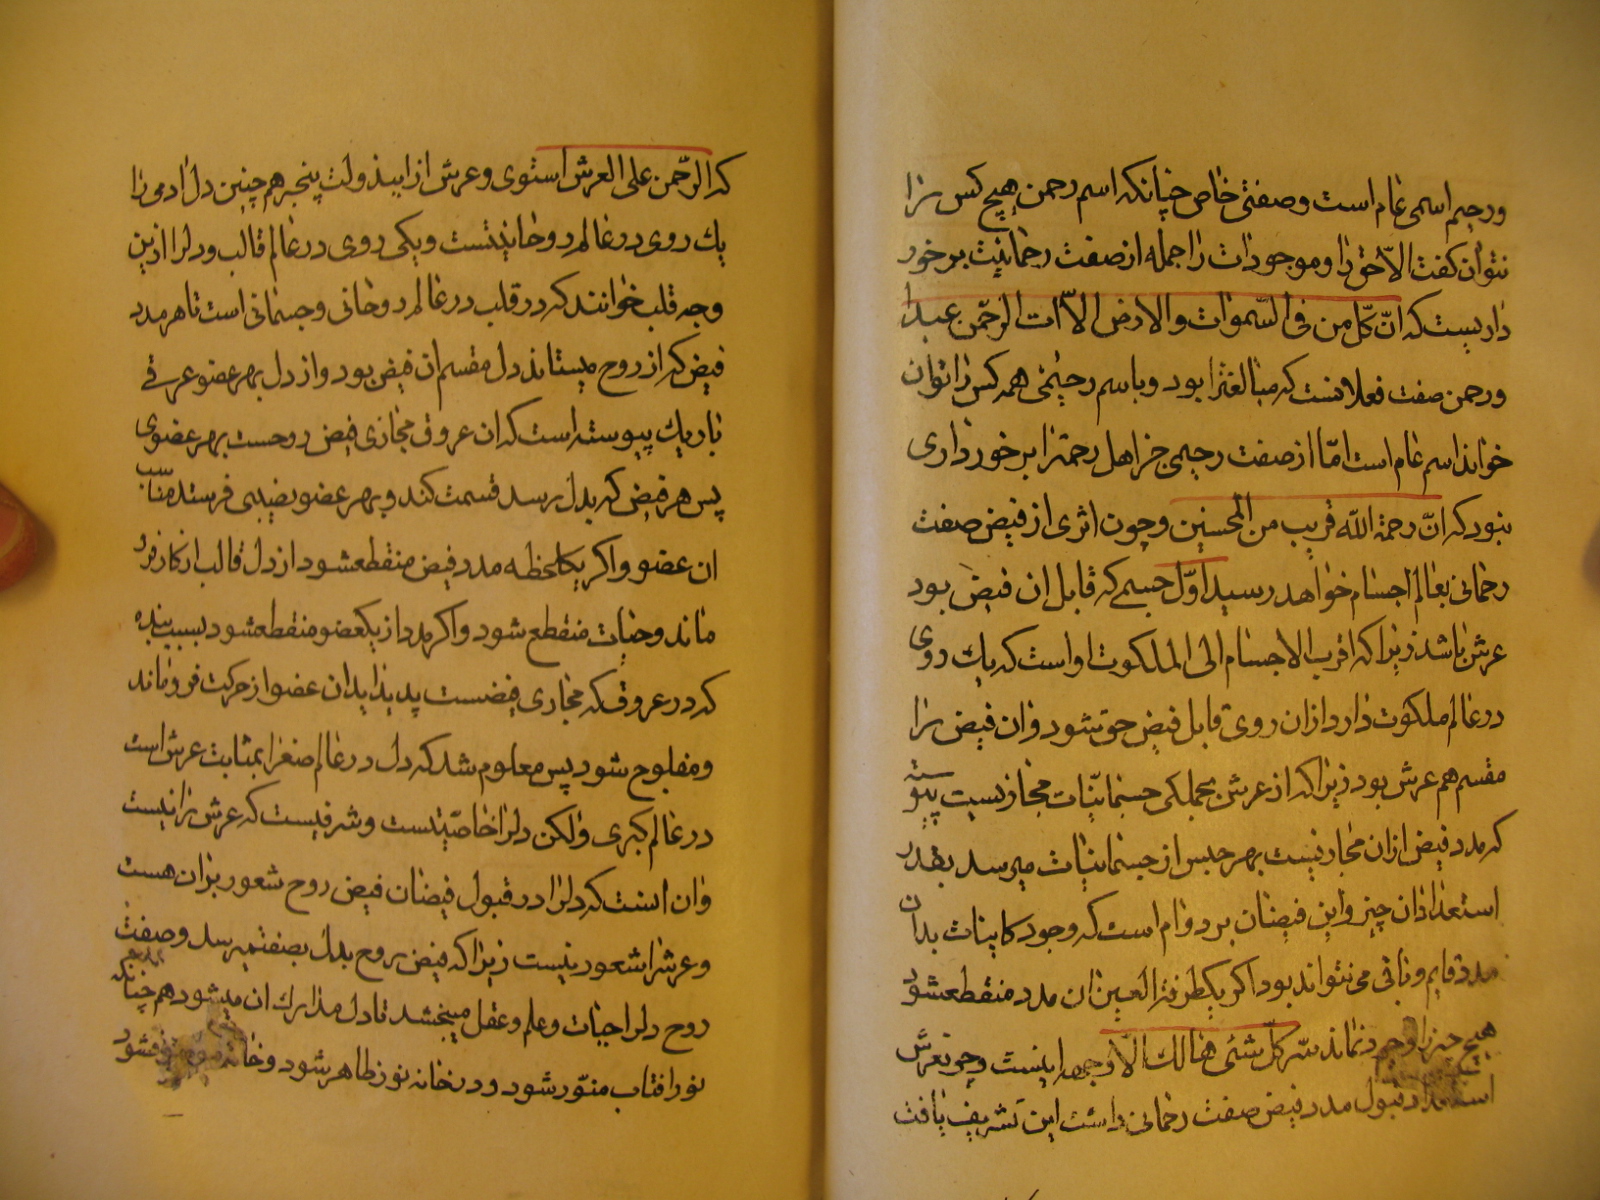 ورحیم اسمی عام است وصفتی خاص چنانکه اسم رحمن هیچ کس را
نتوان کفت الّا حق را وموجودات را جمله از صفت رحمانیت برخور
داریست که انّ کلّ من فی السّموات والارض الّا اٰت الرّحمن عبدا
ورحمن صفت فعلانست که مبالغترا بود وباسم رحیمی همه کس را توان
خواند اسم عام است امّا از صفت رحیمی جز اهل رحمترا برخورداری
نبود که انّ رحمة اللّه قریب من المحسنین وچون اثری از فیض صفت
رحمانی بعالم اجسام خواهد رسید اوّل جسمی که قابل ان فیض بود
عرش باشد زیرا که اقرب الاجسام الی الملکوت اواست که یک روی
در عالم ملکوت دارد از ان روی قابل فیض حق شود وان فیض را
مقسم هم عرش بود زیرا که از عرش بجملکی جسمانیّات مجاریست پیوسته
که مدد فیض از ان مجاریست بهر جنس از جسمانیات میرسد بقدر
استعداد ان چیز واین فیضان بر دوام است که وجود کاینات بدان
مدد قایم وباقی می‌تواند بود اکر یکطرفة العین ان مدد منقطع شود
هیچ چیز را وجود نماند سرّ کلّ شئی هالک الّا وجهه اینست وچون عرش
استعداد قبول مدد فیض صفت رحمانی داشت این تشریف یافت
که الرّحمن علی العرش استوی وعرش از این دولت همچنین دل ادمی را
یک روی در عالم روحانیتست ویکی روی در عالم قالب ودلرا ازین
وجه قلب خوانند که در قلب در عالم روحانی وجسمانی است تا هر مدد
فیض که از روح میستاند دل مقسم ان فیض بود واز دل بهر عضو عرقی
باریک پیوسته است که ان عروق مجاری فیض روحست بهر عضوی
پس هر فیض که بدل رسد قسمت کند وبهر عضو نصیبی فرستد مناسب
ان عضو واکر یکلحظه مدد فیض منقطع شود از دل قالب از کار فرو
ماند وحیات منقطع شود واکر مدد از یکعضو منقطع شود بسبب سده
که در عروق که مجاری فیضست پدید اید ان عضو از حرکت فرو ماند
ومفلوج شود پس معلوم شد که دل در عالم صغرا بمثابت عرش است
در عالم کبری ولکن دلرا خاصیّتست وشرفیست که عرش را نیست
وان انست که دلرا در قبول فیضان فیض روح شعور بر ان هست
وعرشرا شعور نیست زیرا که فیض روح بدل بصفت میرسد وصفت
روح دلرا حیات وعلم وعقل میبخشد تا دل مدرک ان میشود همچنانکه
نور افتاب منوّر شود ودر خانه نور ظاهر شود وخانه شود